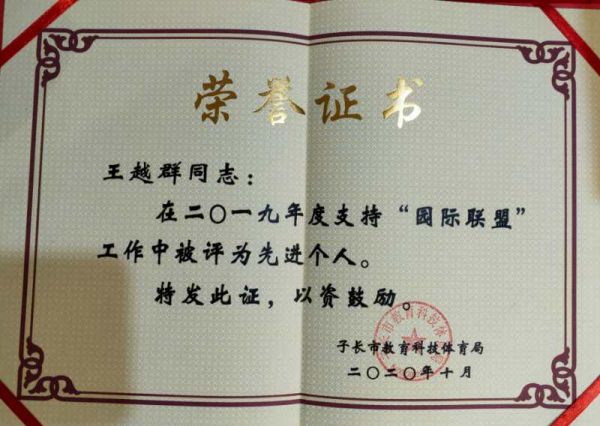 荣誉证书
王越群同志：
在二〇一九年度支持“园际联盟”
工作中被评为先进个人。
特发此证，以资鼓励。
子长市教育科技体育局
二〇二〇年十月